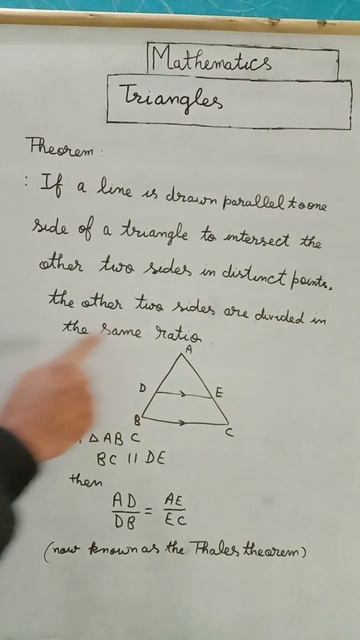 Mathematics
Triangles
Theorem:
: If a line is drawn parallel to one
side of a triangle to intersect the
other two sides in distinct points,
the other two sides are divided in
the same ratio.
A
D E
B C
△ ABC
BC || DE
then
AD/DB = AE/EC
(now known as the Thales theorem)